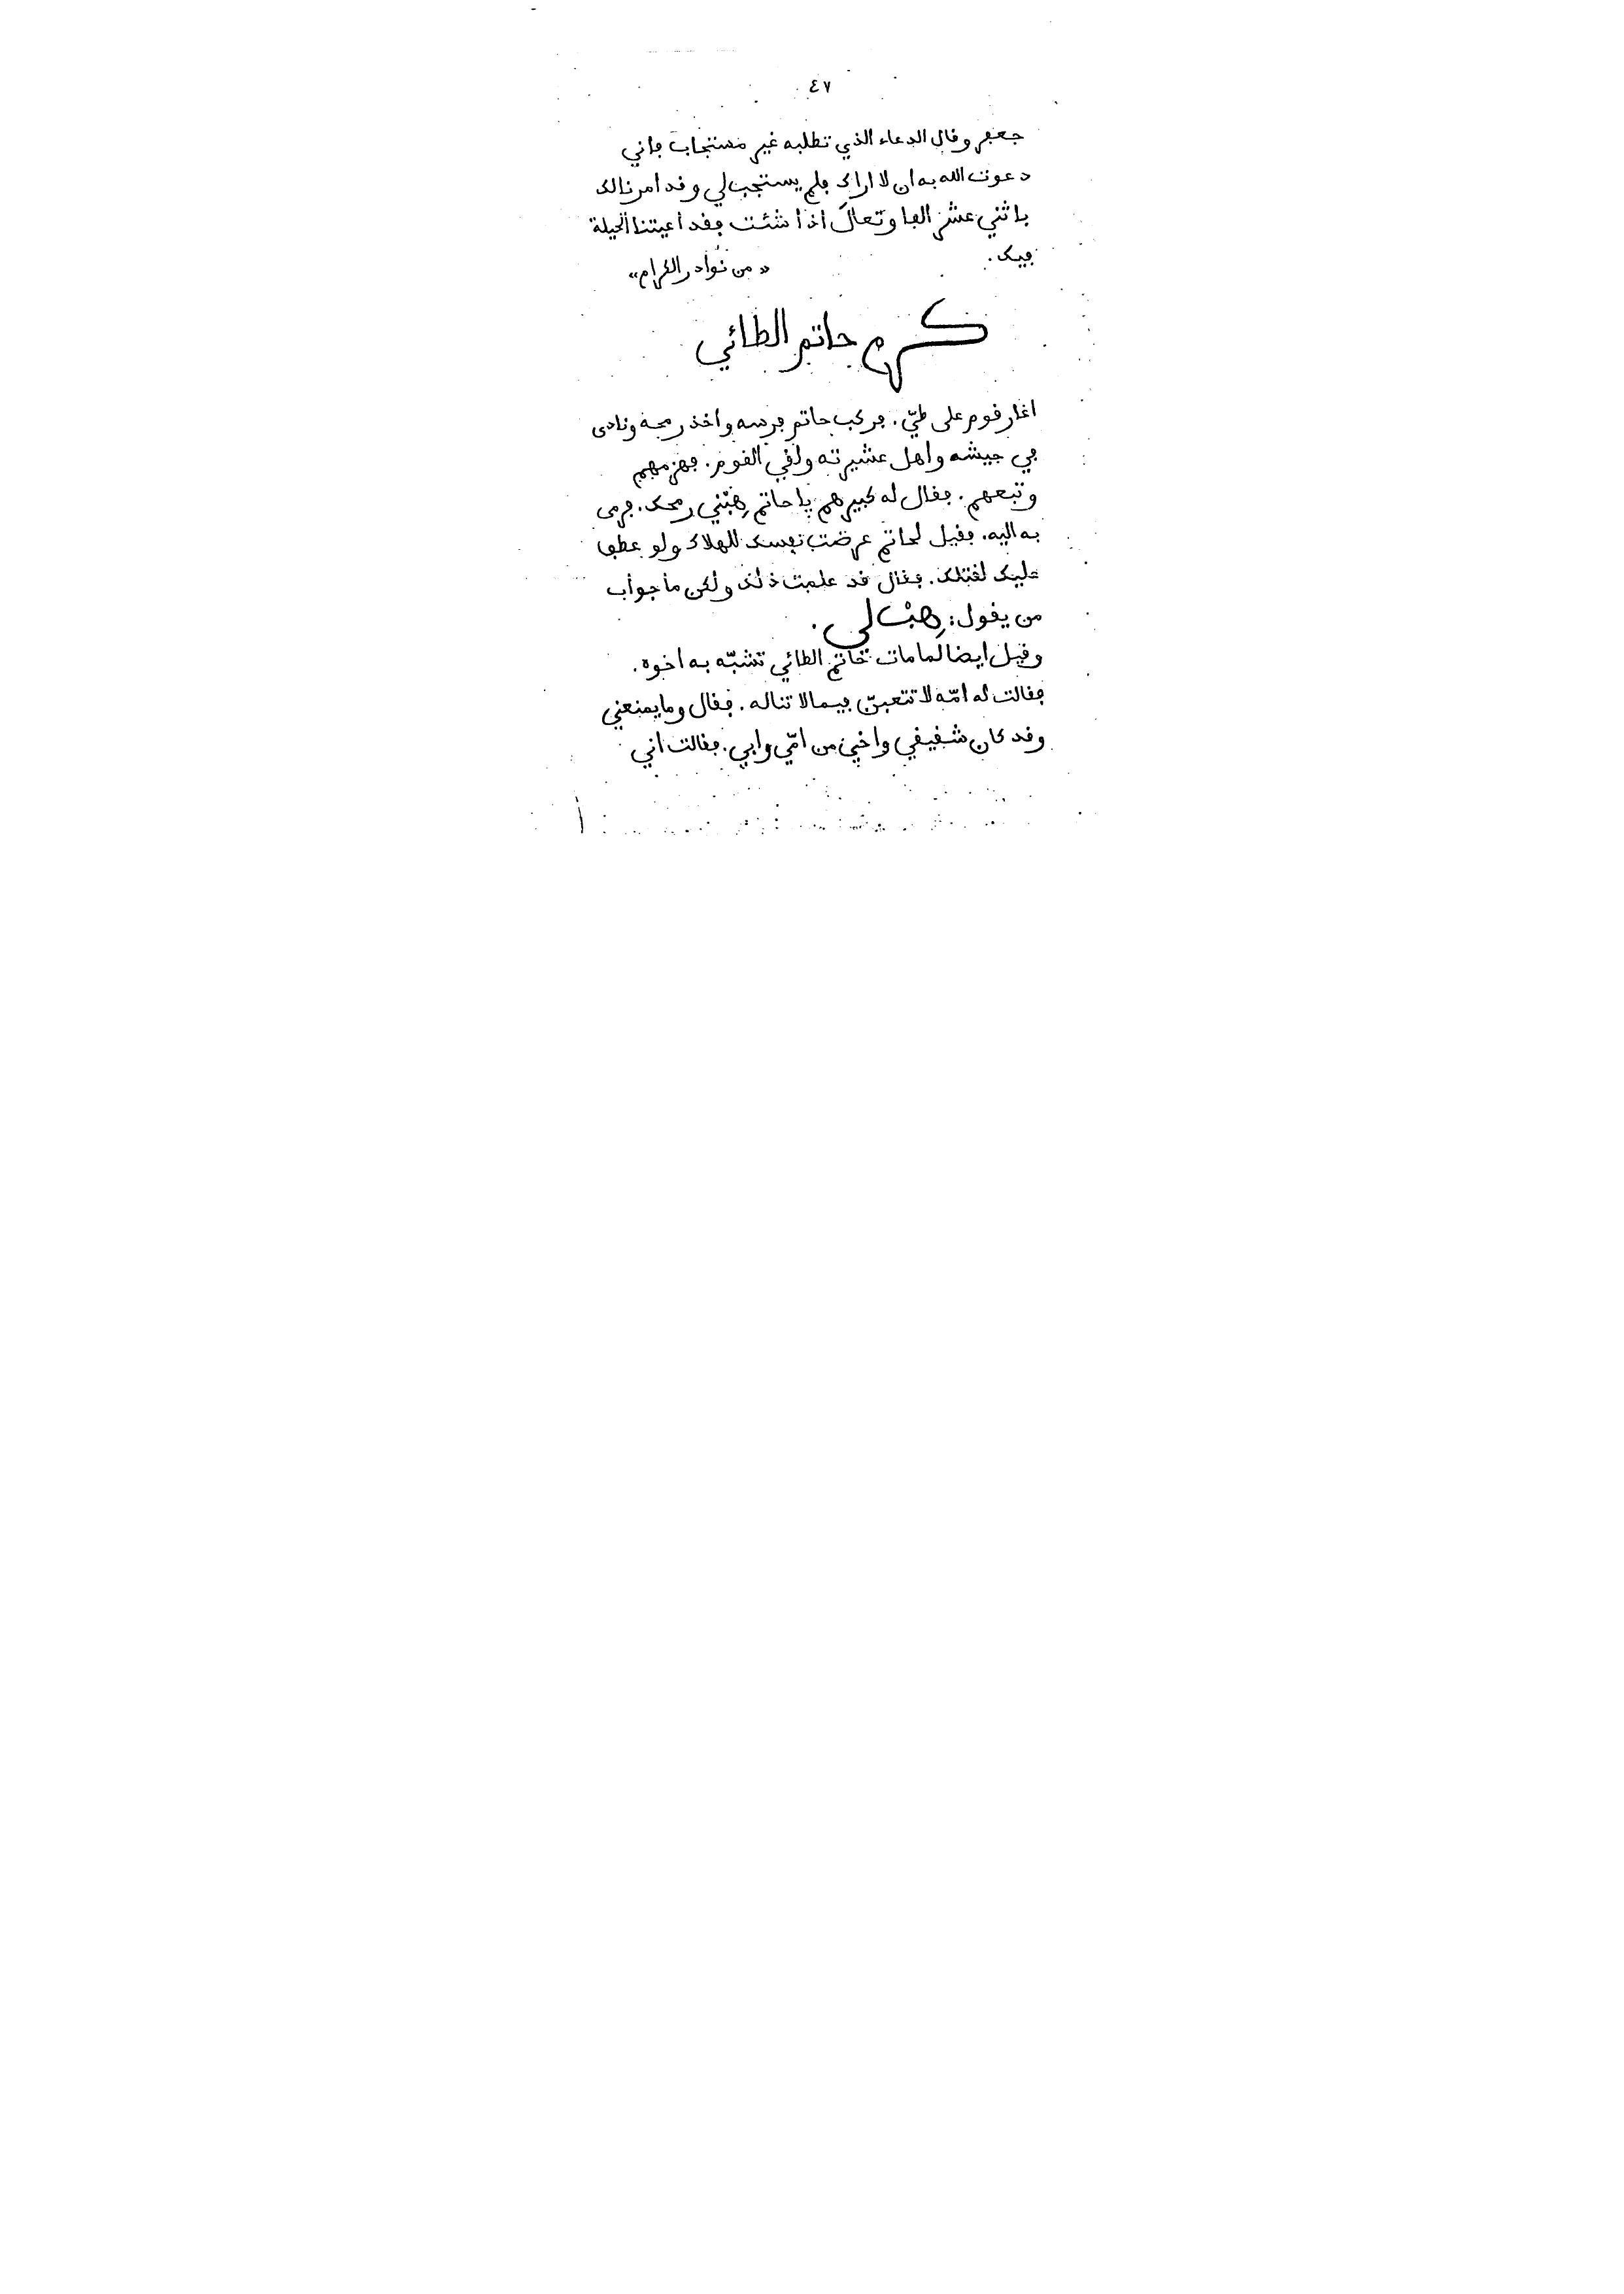 ٤٧
جعفر وقال الدعاء الذي تطلبه غير مستجاب فاني
دعوت الله به ان لا اراك فلم يستجب لي وقد امرنا لك
باثني عشر الفا وتعالَ اذا شئت فقد اعيتنا الحيلة
فيك .
« من نوادر الكرام »
كرم حاتم الطائي
اغار قوم على طيّ . فركب حاتم فرسه واخذ رمحه ونادى
في جيشه واهل عشيرته ولقي القوم . فهزمهم
وتبعهم . فقال له كبيرهم يا حاتم هِبْني رمحك . فرمى
به اليه . فقيل لحاتم عرضت نفسك للهلاك ولو عطف
عليك لقتلك . فقال قد علمت ذلك ولكن ما جواب
من يقول : هِبْ لي .
وقيل ايضا لما مات حاتم الطائي تشبّه به اخوه .
فقالت له امّه لا تتعبنّ فيما لا تناله . فقال وما يمنعني
وقد كان شقيقي واخي من امّي وابي . فقالت اني